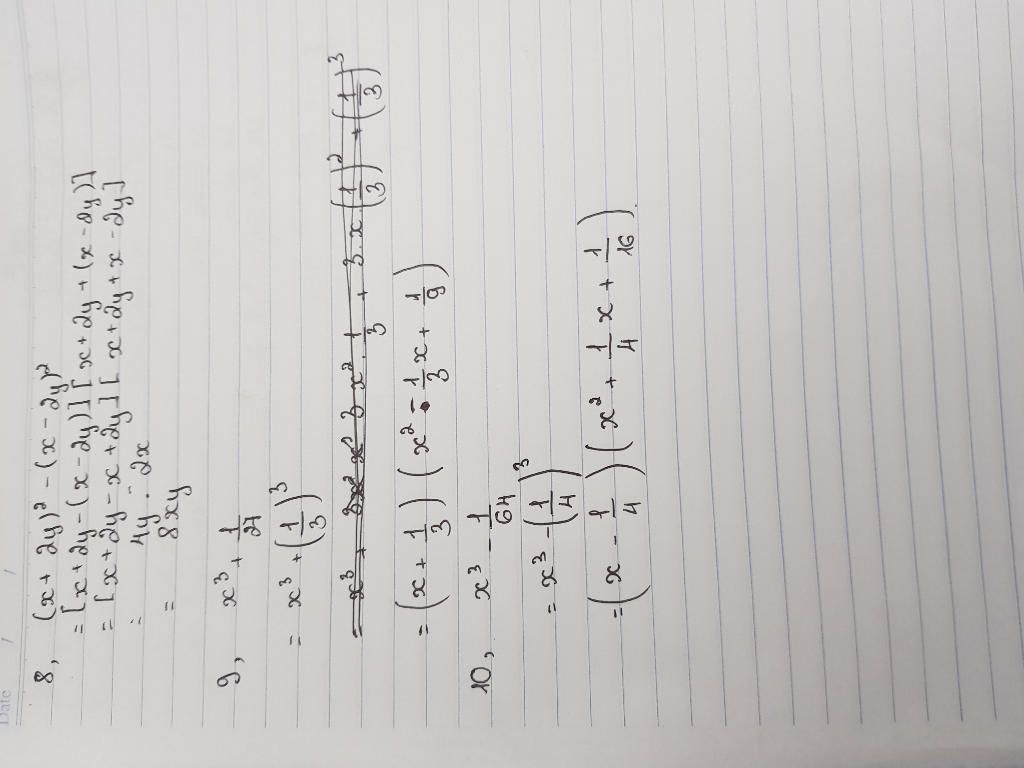 Date / /
8, (x + 2y)² - (x - 2y)²
= [x + 2y - (x - 2y)] [x + 2y + (x - 2y)]
= [x + 2y - x + 2y] [x + 2y + x - 2y]
= 4y . 2x
= 8xy
9, x³ + 1/27
= x³ + (1/3)³
= (x + 1/3) (x² - 1/3 x + 1/9)
10, x³ - 1/64
= x³ - (1/4)³
= (x - 1/4) (x² + 1/4 x + 1/16).